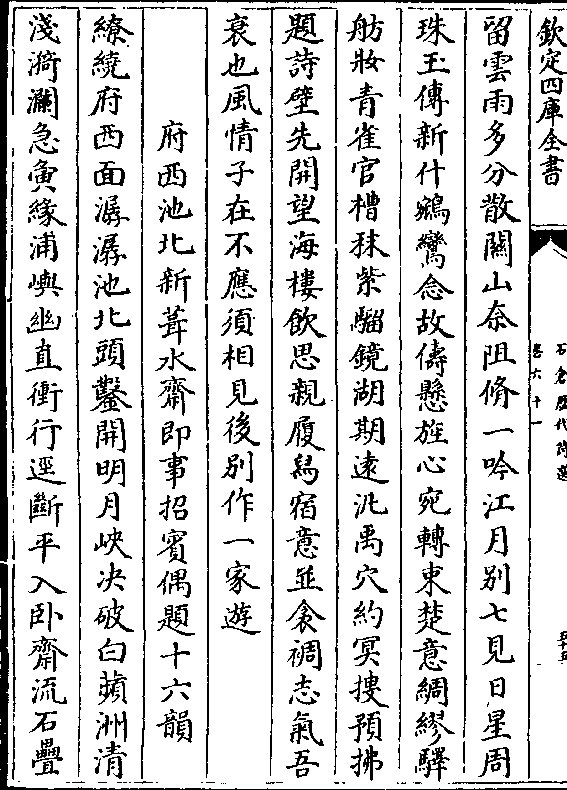 欽定四庫全書
石倉歷代詩選
卷六十一
留雲雨多分散關山奈阻脩一吟江月别七見日星周
珠玉傳新什鵷鸞念故儔懸旌心宛轉東楚意綢繆驛
舫妝青雀官槽秣紫騮鏡湖期遠汎禹穴約冥搜預拂
題詩壁先開望海樓飲思親履舄宿意並衾裯志氣吾
衰也風情子在不應須相見後别作一家遊
府西池北新葺水齋即事招賓偶題十六韻
繚繞府西面潺潺池北頭鑿開明月峽决破白蘋洲清
淺漪瀾急夤緣浦嶼幽直衝行逕斷平入卧齋流石疊